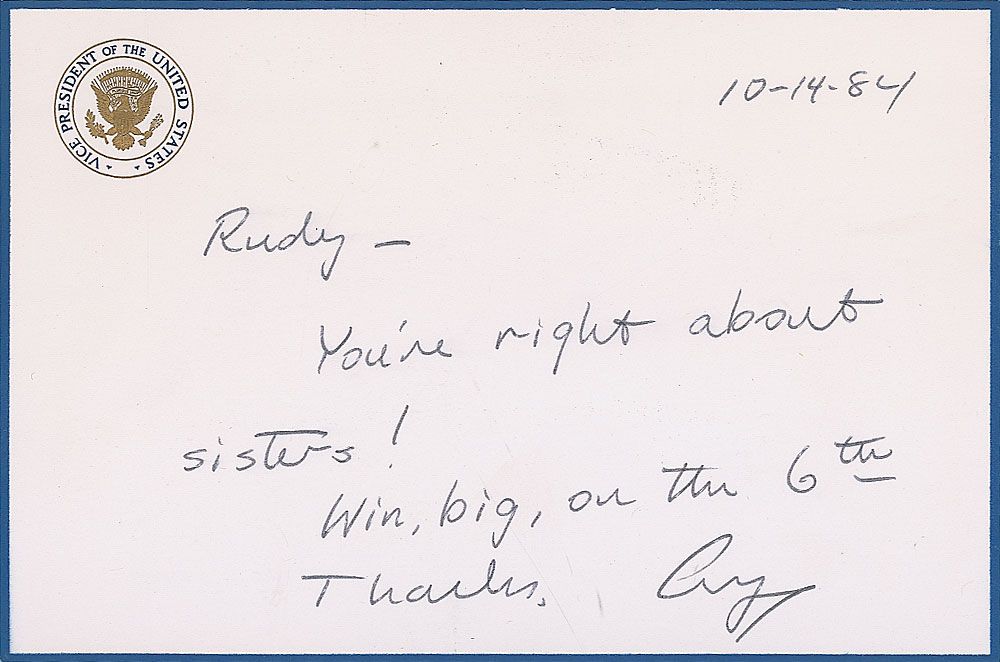 VICE PRESIDENT OF THE UNITED STATES
10-14-84
Rudy –
You're right about
sisters!
Win, big, on the 6th
Thanks,